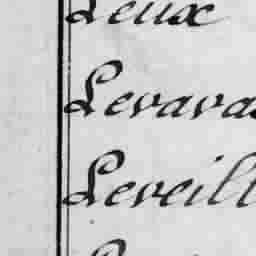 Leux
Levava
Leveill